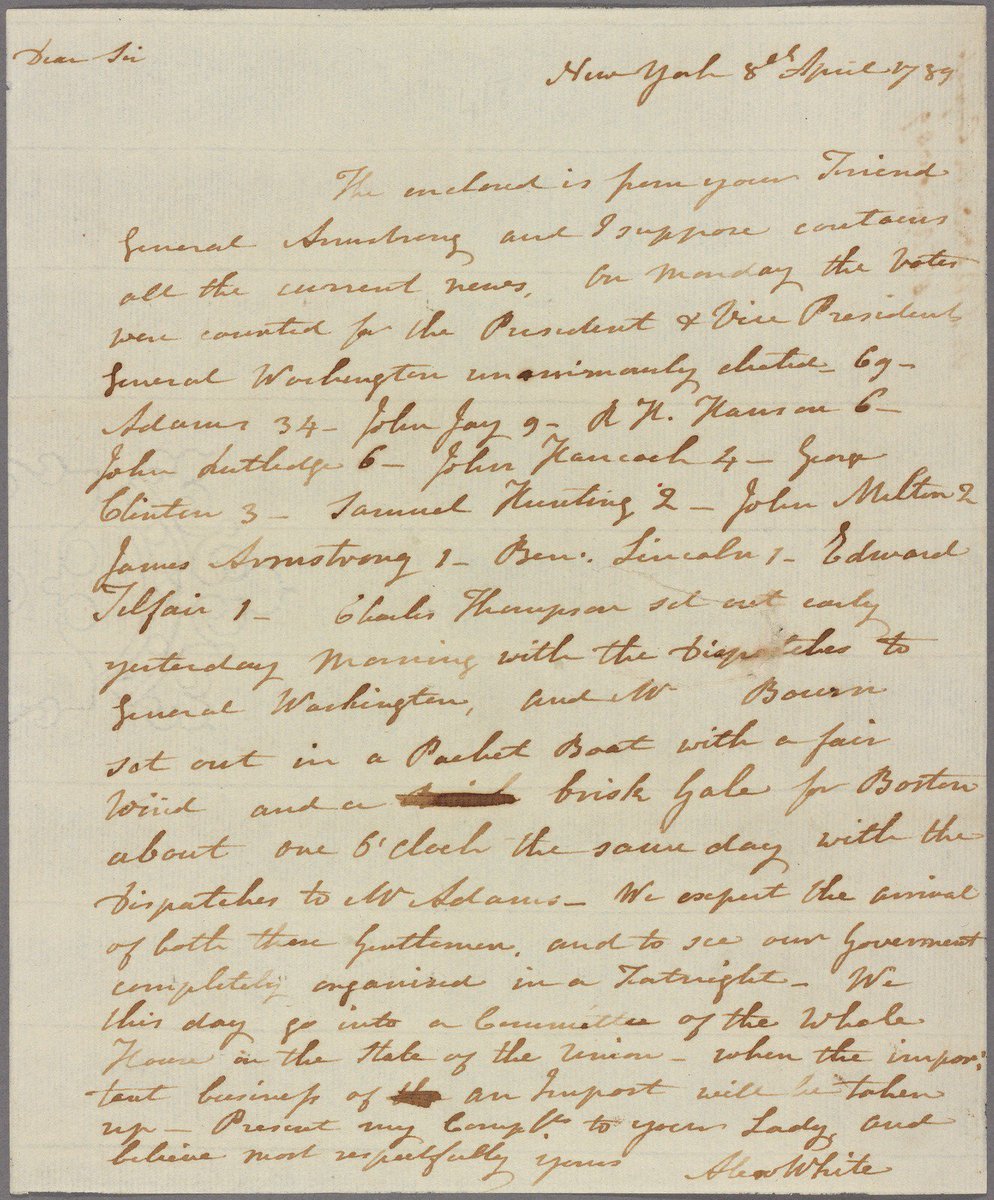 Dear Sir
New York 8th April 1789
The enclosed is from your Friend
General Armstrong and I suppose contains
all the current news, On Monday the Votes
were counted for the President & Vice President
General Washington unanimously elected – 69 –
Adams 34 – John Jay 9 – R H. Hanson 6 –
John Rutledge 6 – John Hancock 4 – George
Clinton 3 – Samuel Hunting 2 – John Milton 2
James Armstrong 1 – Ben. Lincoln 1 – Edward
Telfair 1 – Charles Thompson set out early
yesterday Morning with the Dispatches to
General Washington, and Mr Bourn
set out in a Packet Boat with a fair
Wind and a brisk Gale for Boston
about one O'clock the same day with the
Dispatches to Mr Adams – We expect the arrival
of both these Gentlemen, and to see our Goverment
completely organised in a Fortnight – We
this day go into a Committee of the Whole
House on the State of the Union – when the impor-
tant business of an Impost will be taken
up – Present my Complts to your Lady, and
believe most respectfully yours Alex White